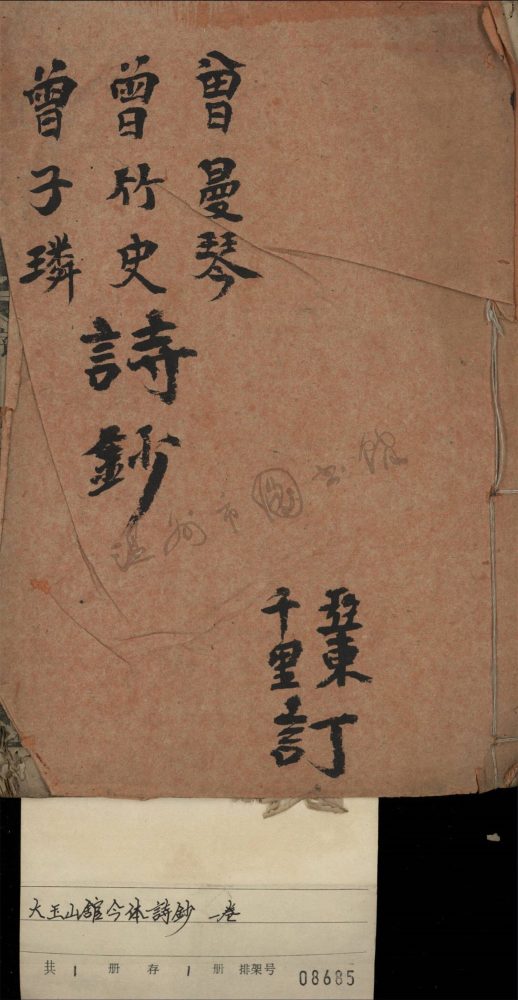 曾曼琴
曾竹史
曾子璘
詩鈔
亞東
千里
訂
温州市图书馆
大玉山館今体詩鈔 一卷
共 1 册 存 1 册 排架号 08685